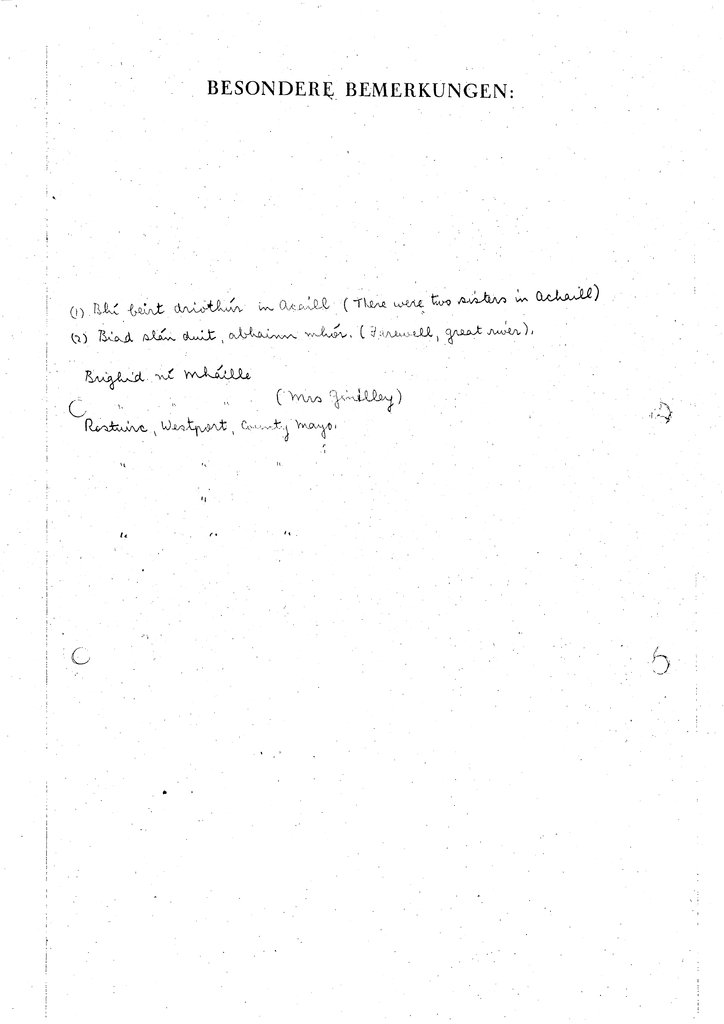 BESONDERE BEMERKUNGEN:
(1) Bhí beirt driothúr in Acaill (There were two sisters in Achaill)
(2) Biad slán duit, abhainn mhór. (Farewell, great river).
Brighid ní Mháille
" " "
(Mrs)
Rostuirc, Westport, County Mayo.
" " "
"
" " "